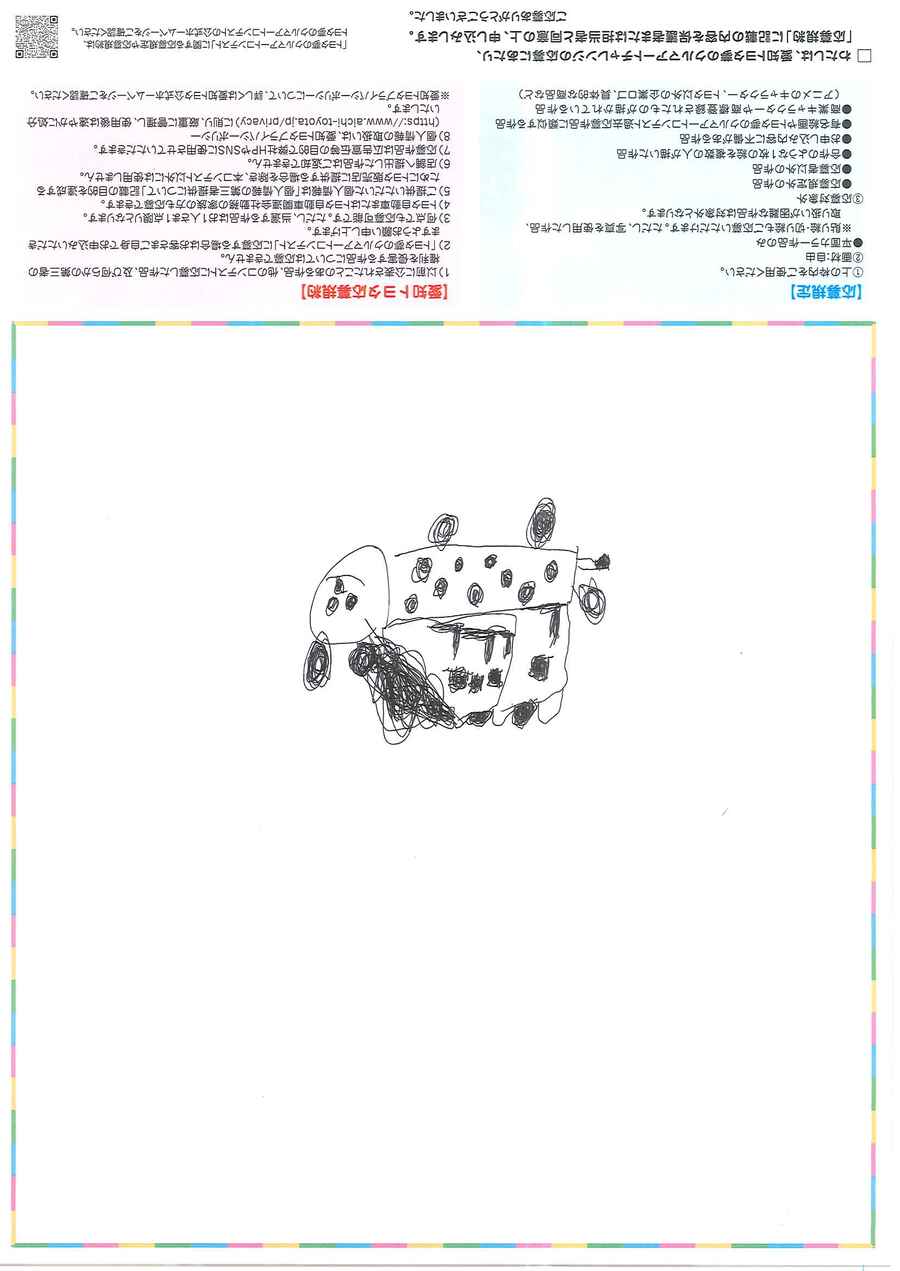 【応募規定】
①上の枠内をご使用ください。
②画材：自由
●平面カラー作品のみ
※貼り絵・切り絵もご応募いただけます。ただし、写真を使用した作品、
取り扱いが困難な作品は対象外となります。
③応募対象外
●応募規定外の作品
●応募者以外の作品
●合作のような1枚の絵を複数の人が描いた作品
●お申し込み内容に不備がある作品
●有名絵画やトヨタ夢のクルマアートコンテスト過去応募作品に類似する作品
●商業キャラクターや商標登録されたものが描かれている作品
（アニメのキャラクター、トヨタ以外の企業ロゴ、具体的な商品など）
【愛知トヨタ応募規約】
1）以前に公表されたことのある作品、他のコンテストに応募した作品、及び何らかの第三者の
権利を侵害する作品については応募できません。
2）「トヨタ夢のクルマアートコンテスト」に応募する場合はお客さまご自身でお申込みいただき
ますようお願い申し上げます。
3）何点でも応募可能です。ただし、当選する作品はお1人さま1点限りとなります。
4）トヨタ自動車またはトヨタ自動車関連会社勤務の家族の方も応募できます。
5）ご提供いただいた個人情報は「個人情報の第三者提供について」記載の目的を達成する
ためにトヨタ販売店に提供する場合を除き、本コンテスト以外には使用しません。
6）店舗へ提出した作品はご返却できません。
7）応募作品は広告宣伝等の目的で弊社HPやSNSに使用させていただきます。
8）個人情報の取扱いは、愛知トヨタプライバシーポリシー
（https://www.aichi-toyota.jp/privacy）に則り、厳重に管理し、使用後は速やかに処分
いたします。
※愛知トヨタプライバシーポリシーについて、詳しくは愛知トヨタ公式ホームページをご確認ください。
□ わたしは、愛知トヨタ夢のクルマアートチャレンジの応募にあたり、
「応募規約」に記載の内容を保護者または担当者と同意の上、申し込みします。
ご応募ありがとうございました。
「トヨタ夢のクルマアートコンテスト」に関する応募規定や応募規約は、
トヨタ夢のクルマアートコンテストの公式ホームページをご確認ください。